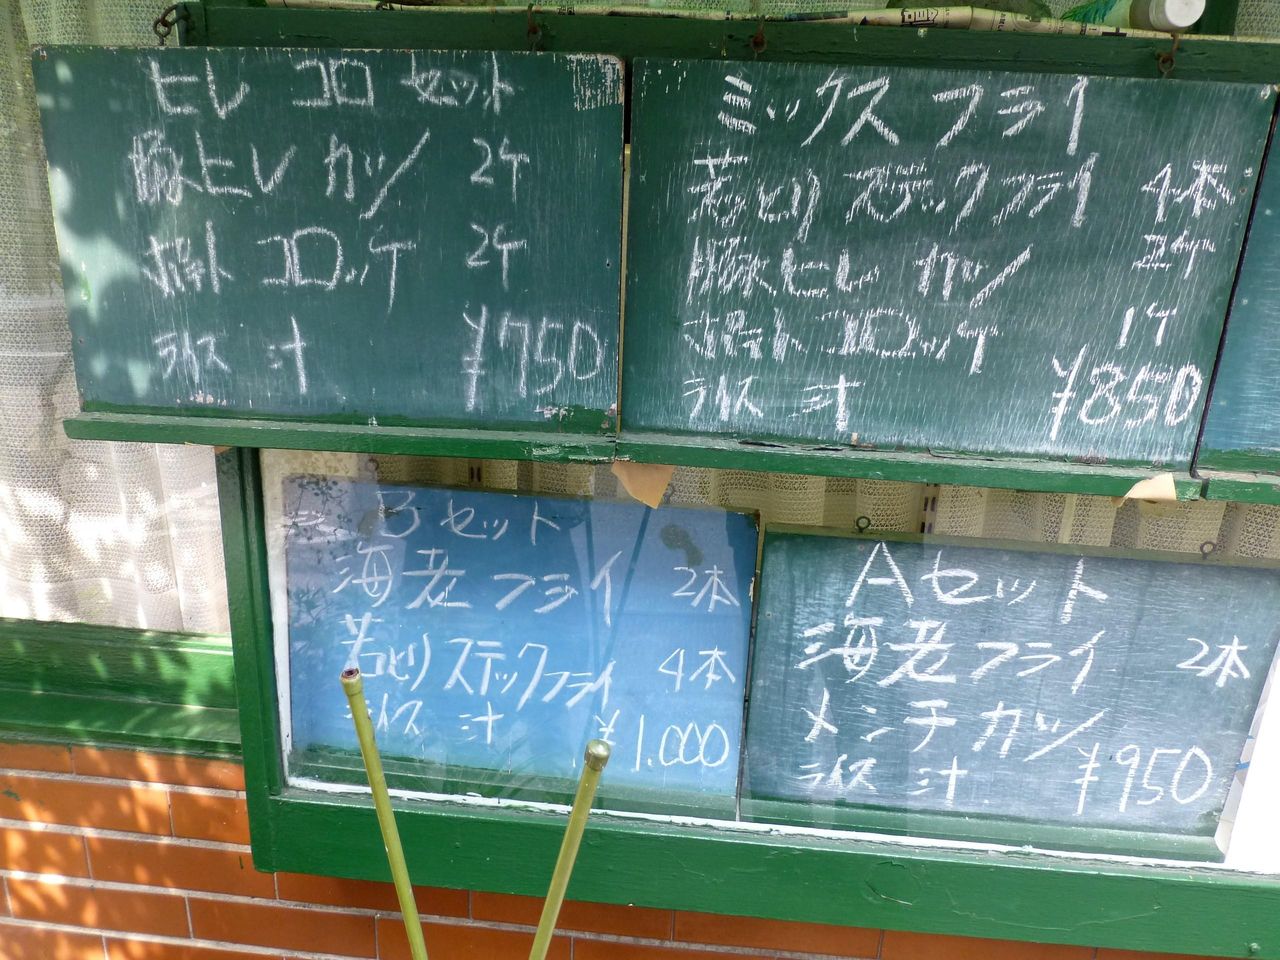 ヒレコロセット
豚ヒレカツ 2ケ
ポテトコロッケ 2ケ
ライス 汁 ¥750
ミックスフライ
若とりスティックフライ 4本
豚ヒレカツ 2ケ
ポテトコロッケ 1ケ
ライス 汁 ¥850
Bセット
海老フライ 2本
若とりステックフライ 4本
ライス 汁 ¥1.000
Aセット
海老フライ 2本
メンチカツ
ライス 汁 ¥950